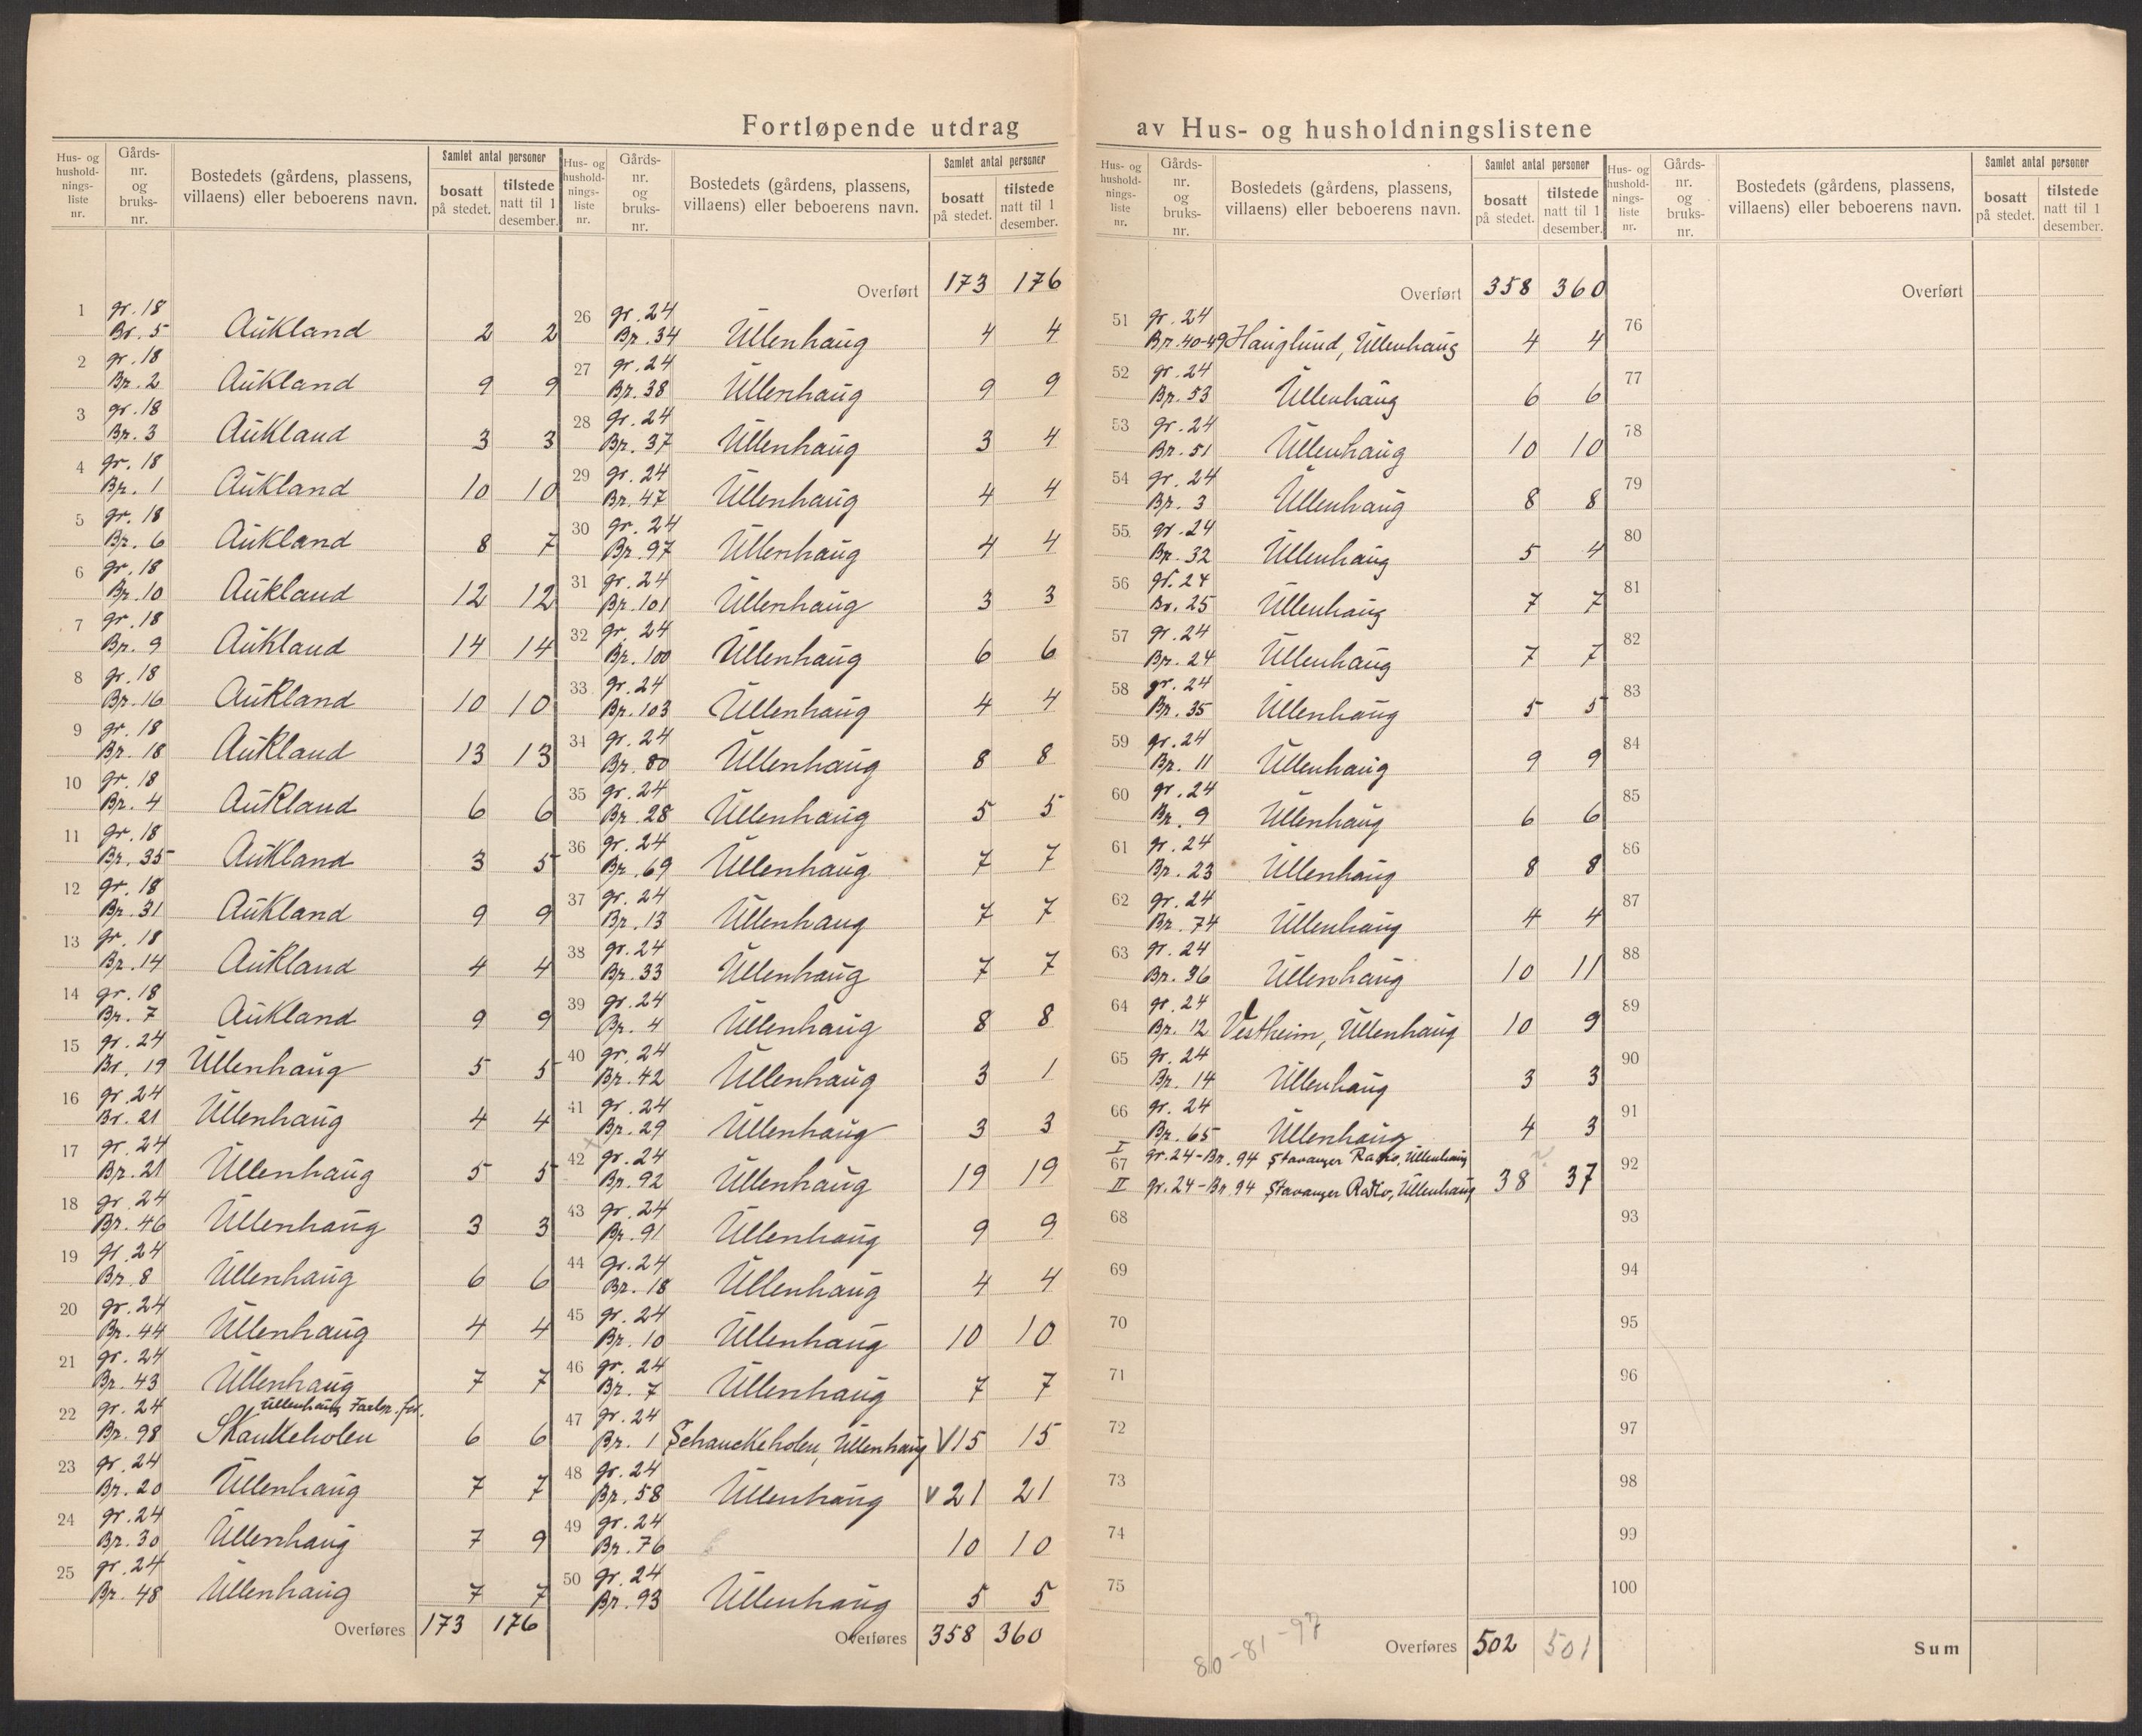 Fortløpende utdrag av Hus- og husholdningslistene
Hus- og hushold-nings-liste nr. | Gårds-nr. og bruks-nr. | Bostedets (gårdens, plassens, villaens) eller beboerens navn. | Samlet antal personer | bosatt på stedet. | tilstede natt til 1 desember.
1 gr. 18 Br. 5 Aukland 2 2
2 gr. 18 Br. 2 Aukland 9 9
3 gr. 18 Br. 3 Aukland 3 3
4 gr. 18 Br. 1 Aukland 10 10
5 gr. 18 Br. 6 Aukland 8 7
6 gr. 18 Br. 10 Aukland 12 12
7 gr. 18 Br. 9 Aukland 14 14
8 gr. 18 Br. 16 Aukland 10 10
9 gr. 18 Br. 18 Aukland 13 13
10 gr. 18 Br. 4 Aukland 6 6
11 gr. 18 Br. 35 Aukland 3 5
12 gr. 18 Br. 31 Aukland 9 9
13 gr. 18 Br. 14 Aukland 4 4
14 gr. 18 Br. 7 Aukland 9 9
15 gr. 24 Br. 19 Ullenhaug 5 5
16 gr. 24 Br. 21 Ullenhaug 4 4
17 gr. 24 Br. 21 Ullenhaug 5 5
18 gr. 24 Br. 46 Ullenhaug 3 3
19 gr. 24 Br. 8 Ullenhaug 6 6
20 gr. 24 Br. 44 Ullenhaug 4 4
21 gr. 24 Br. 43 Ullenhaug 7 7
22 gr. 24 Br. 98 Ullenhaug Skankeholen 6 6
23 gr. 24 Br. 20 Ullenhaug 7 7
24 gr. 24 Br. 30 Ullenhaug 7 9
25 gr. 24 Br. 48 Ullenhaug 7 7
Overføres 173 176
Hus- og hushold-nings-liste nr. | Gårds-nr. og bruks-nr. | Bostedets (gårdens, plassens, villaens) eller beboerens navn. | Samlet antal personer | bosatt på stedet. | tilstede natt til 1 desember.
Overført 173 176
26 gr. 24 Br. 34 Ullenhaug 4 4
27 gr. 24 Br. 38 Ullenhaug 9 9
28 gr. 24 Br. 37 Ullenhaug 3 4
29 gr. 24 Br. 47 Ullenhaug 4 4
30 gr. 24 Br. 97 Ullenhaug 4 4
31 gr. 24 Br. 101 Ullenhaug 3 3
32 gr. 24 Br. 100 Ullenhaug 6 6
33 gr. 24 Br. 103 Ullenhaug 4 4
34 gr. 24 Br. 80 Ullenhaug 8 8
35 gr. 24 Br. 28 Ullenhaug 5 5
36 gr. 24 Br. 69 Ullenhaug 7 7
37 gr. 24 Br. 13 Ullenhaug 7 7
38 gr. 24 Br. 33 Ullenhaug 7 7
39 gr. 24 Br. 4 Ullenhaug 8 8
40 gr. 24 Br. 42 Ullenhaug 3 1
41 gr. 24 Br. 29 Ullenhaug 3 3
42 gr. 24 Br. 92 Ullenhaug 19 19
43 gr. 24 Br. 91 Ullenhaug 9 9
44 gr. 24 Br. 18 Ullenhaug 4 4
45 gr. 24 Br. 10 Ullenhaug 10 10
46 gr. 24 Br. 7 Ullenhaug 7 7
47 gr. 24 Br. 1 Schanckeholen, Ullenhaug V 15 15
48 gr. 24 Br. 58 Ullenhaug V 21 21
49 gr. 24 Br. 76 10 10
50 gr. 24 Br. 93 Ullenhaug 5 5
Overføres 358 360
Hus- og hushold-nings-liste nr. | Gårds-nr. og bruks-nr. | Bostedets (gårdens, plassens, villaens) eller beboerens navn. | Samlet antal personer | bosatt på stedet. | tilstede natt til 1 desember.
Overført 358 360
51 gr. 24 Br. 40-49 Hauglund, Ullenhaug 4 4
52 gr. 24 Br. 53 Ullenhaug 6 6
53 gr. 24 Br. 51 Ullenhaug 10 10
54 gr. 24 Br. 3 Ullenhaug 8 8
55 gr. 24 Br. 32 Ullenhaug 5 4
56 gr. 24 Br. 25 Ullenhaug 7 7
57 gr. 24 Br. 24 Ullenhaug 7 7
58 gr. 24 Br. 35 Ullenhaug 5 5
59 gr. 24 Br. 11 Ullenhaug 9 9
60 gr. 24 Br. 9 Ullenhaug 6 6
61 gr. 24 Br. 23 Ullenhaug 8 8
62 gr. 24 Br. 74 Ullenhaug 4 4
63 gr. 24 Br. 36 Ullenhaug 10 11
64 gr. 24 Br. 12 Vestheim, Ullenhaug 10 9
65 gr. 24 Br. 14 Ullenhaug 3 3
66 gr. 24 Br. 65 Ullenhaug 4 3
I gr. 24 - Br. 94 Stavanger Radio, Ullenhaug
67
II gr. 24 - Br. 94 Stavanger Radio, Ullenhaug 38 37
68
69
70
71
72
73
74
75
80-81-97
Overføres 502 501
Hus- og hushold-nings-liste nr. | Gårds-nr. og bruks-nr. | Bostedets (gårdens, plassens, villaens) eller beboerens navn. | Samlet antal personer | bosatt på stedet. | tilstede natt til 1 desember.
Overført
76
77
78
79
80
81
82
83
84
85
86
87
88
89
90
91
92
93
94
95
96
97
98
99
100
Sum